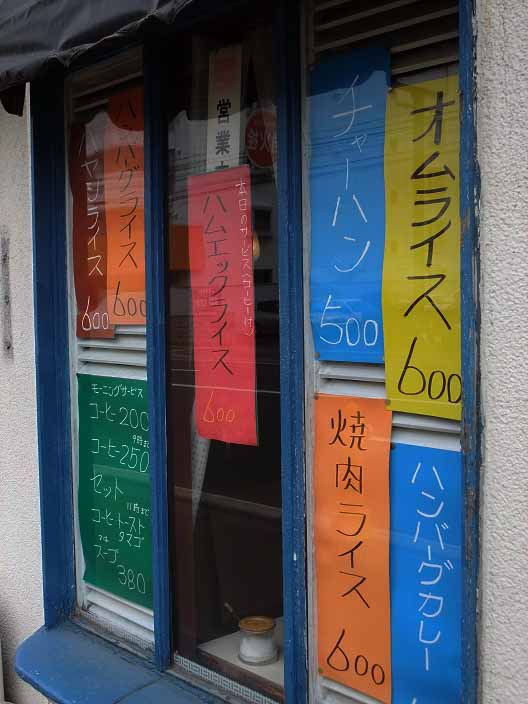 ハヤシライス
600
ハンバーグライス
600
営業
本日のサービス(コーヒー付)
ハムエッグライス
600
チャーハン
500
オムライス
600
焼肉ライス
600
ハンバーグカレー
モーニングサービス
コーヒー200
9時まで
コーヒー250
セット
11時まで
コーヒートースト
タマゴ
スープ
380